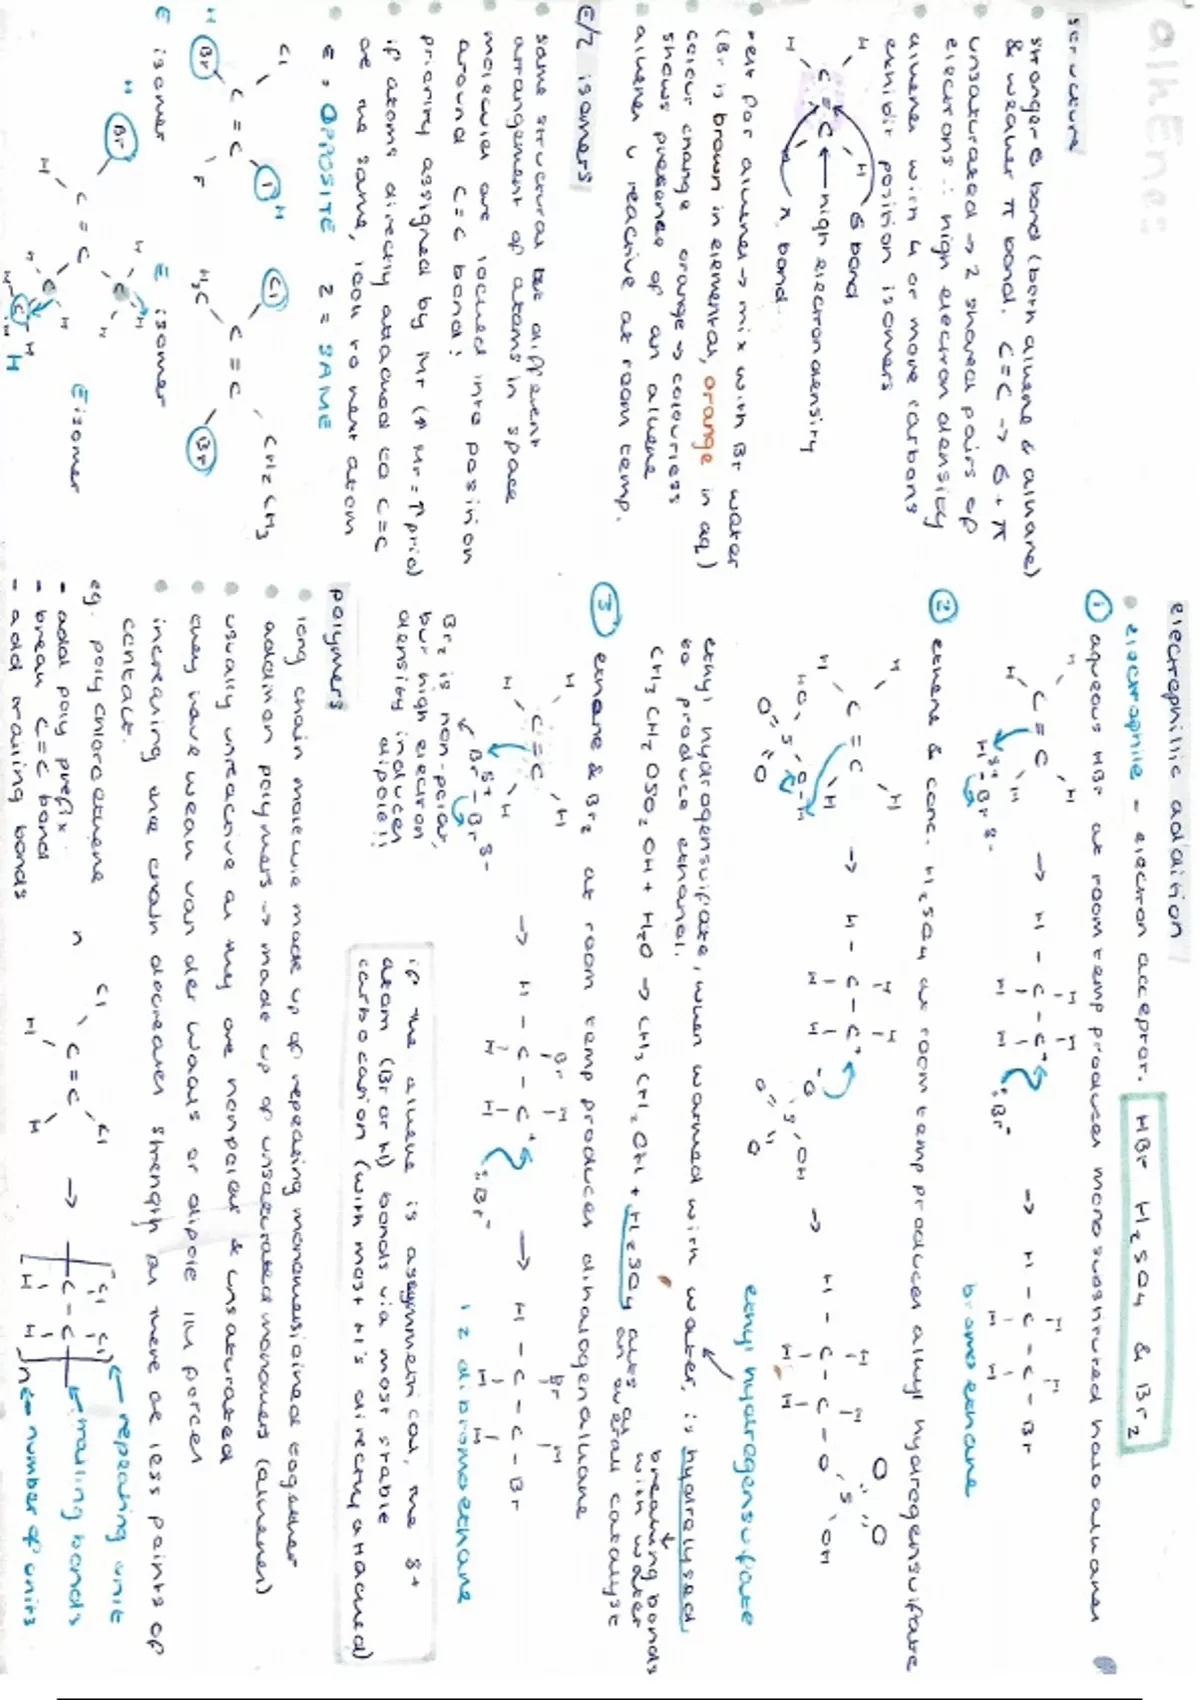 alkEnes
structure
stronger σ bond (both alkene & alkane)
& weaker π bond. C=C → σ + π
unsaturated → 2 shared pairs of
electrons ∴ high electron density
alkenes with 4 or more carbons
exhibit position isomers
H H
C = C
H H
σ bond
high electron density
π bond
test for alkenes → mix with Br water
(Br is brown in elemental, orange in aq)
colour change orange → colourless
shows presence of an alkene
alkenes v reactive at room temp.
E/Z isomers
same structural but different
arrangement of atoms in space
molecules are locked into position
around C=C bond!
priority assigned by Mr (↑ Mr = ↑ prio)
if atoms directly attached to C=C
are the same, look to next atom
E = OPPOSITE Z = SAME
Cl I H
C = C
H Br F
E isomer
Cl CH2CH3
C = C
H3C Br
E isomer
H Br
C = C
H
E isomer
electrophilic addition
electrophile - electron acceptor. HBr H2SO4 & Br2
① aqueous HBr at room temp produces monosubstituted haloalkanes
H H
C = C → H - C - C+ :Br- → H - C - C - Br
H H
δ+ H - Br δ-
bromoethane
② ethene & conc. H2SO4 at room temp produces alkyl hydrogensulfate
H H
C = C → H - C - C+ → H - C - C - O
H H
ethyl hydrogensulfate
ethyl hydrogensulfate, when warmed with water, is hydrolysed
to produce ethanol.
breaking bonds
with water
CH3CH2OSO2OH + H2O → CH3CH2OH + H2SO4 acts as
an overall catalyst
③ ethene & Br2 at room temp produces dihalogenalkane
H H
C = C → H - C - C+ :Br- → H - C - C - Br
H H
δ+ Br - Br δ-
1 2 dibromoethane
Br2 is non-polar,
but high electron
density induces
dipole!!
if the alkene is assymmetrical, the δ+
atom (Br or H) bonds via most stable
carbocation (with most H's directly attached)
polymers
long chain molecule made up of repeating monomers joined together
addition polymers → made up of unsaturated monomers (alkenes)
usually unreactive as they are nonpolar & unsaturated
they have weak van der waals or dipole IM forces
increasing the chain decreases strength as there are less points of
contact.
eg. polychloroethene
- add poly prefix
- break C=C bond
- add trailing bonds
n Cl Cl
C = C → C - C
H H
n
repeating unit
trailing bonds
number of units